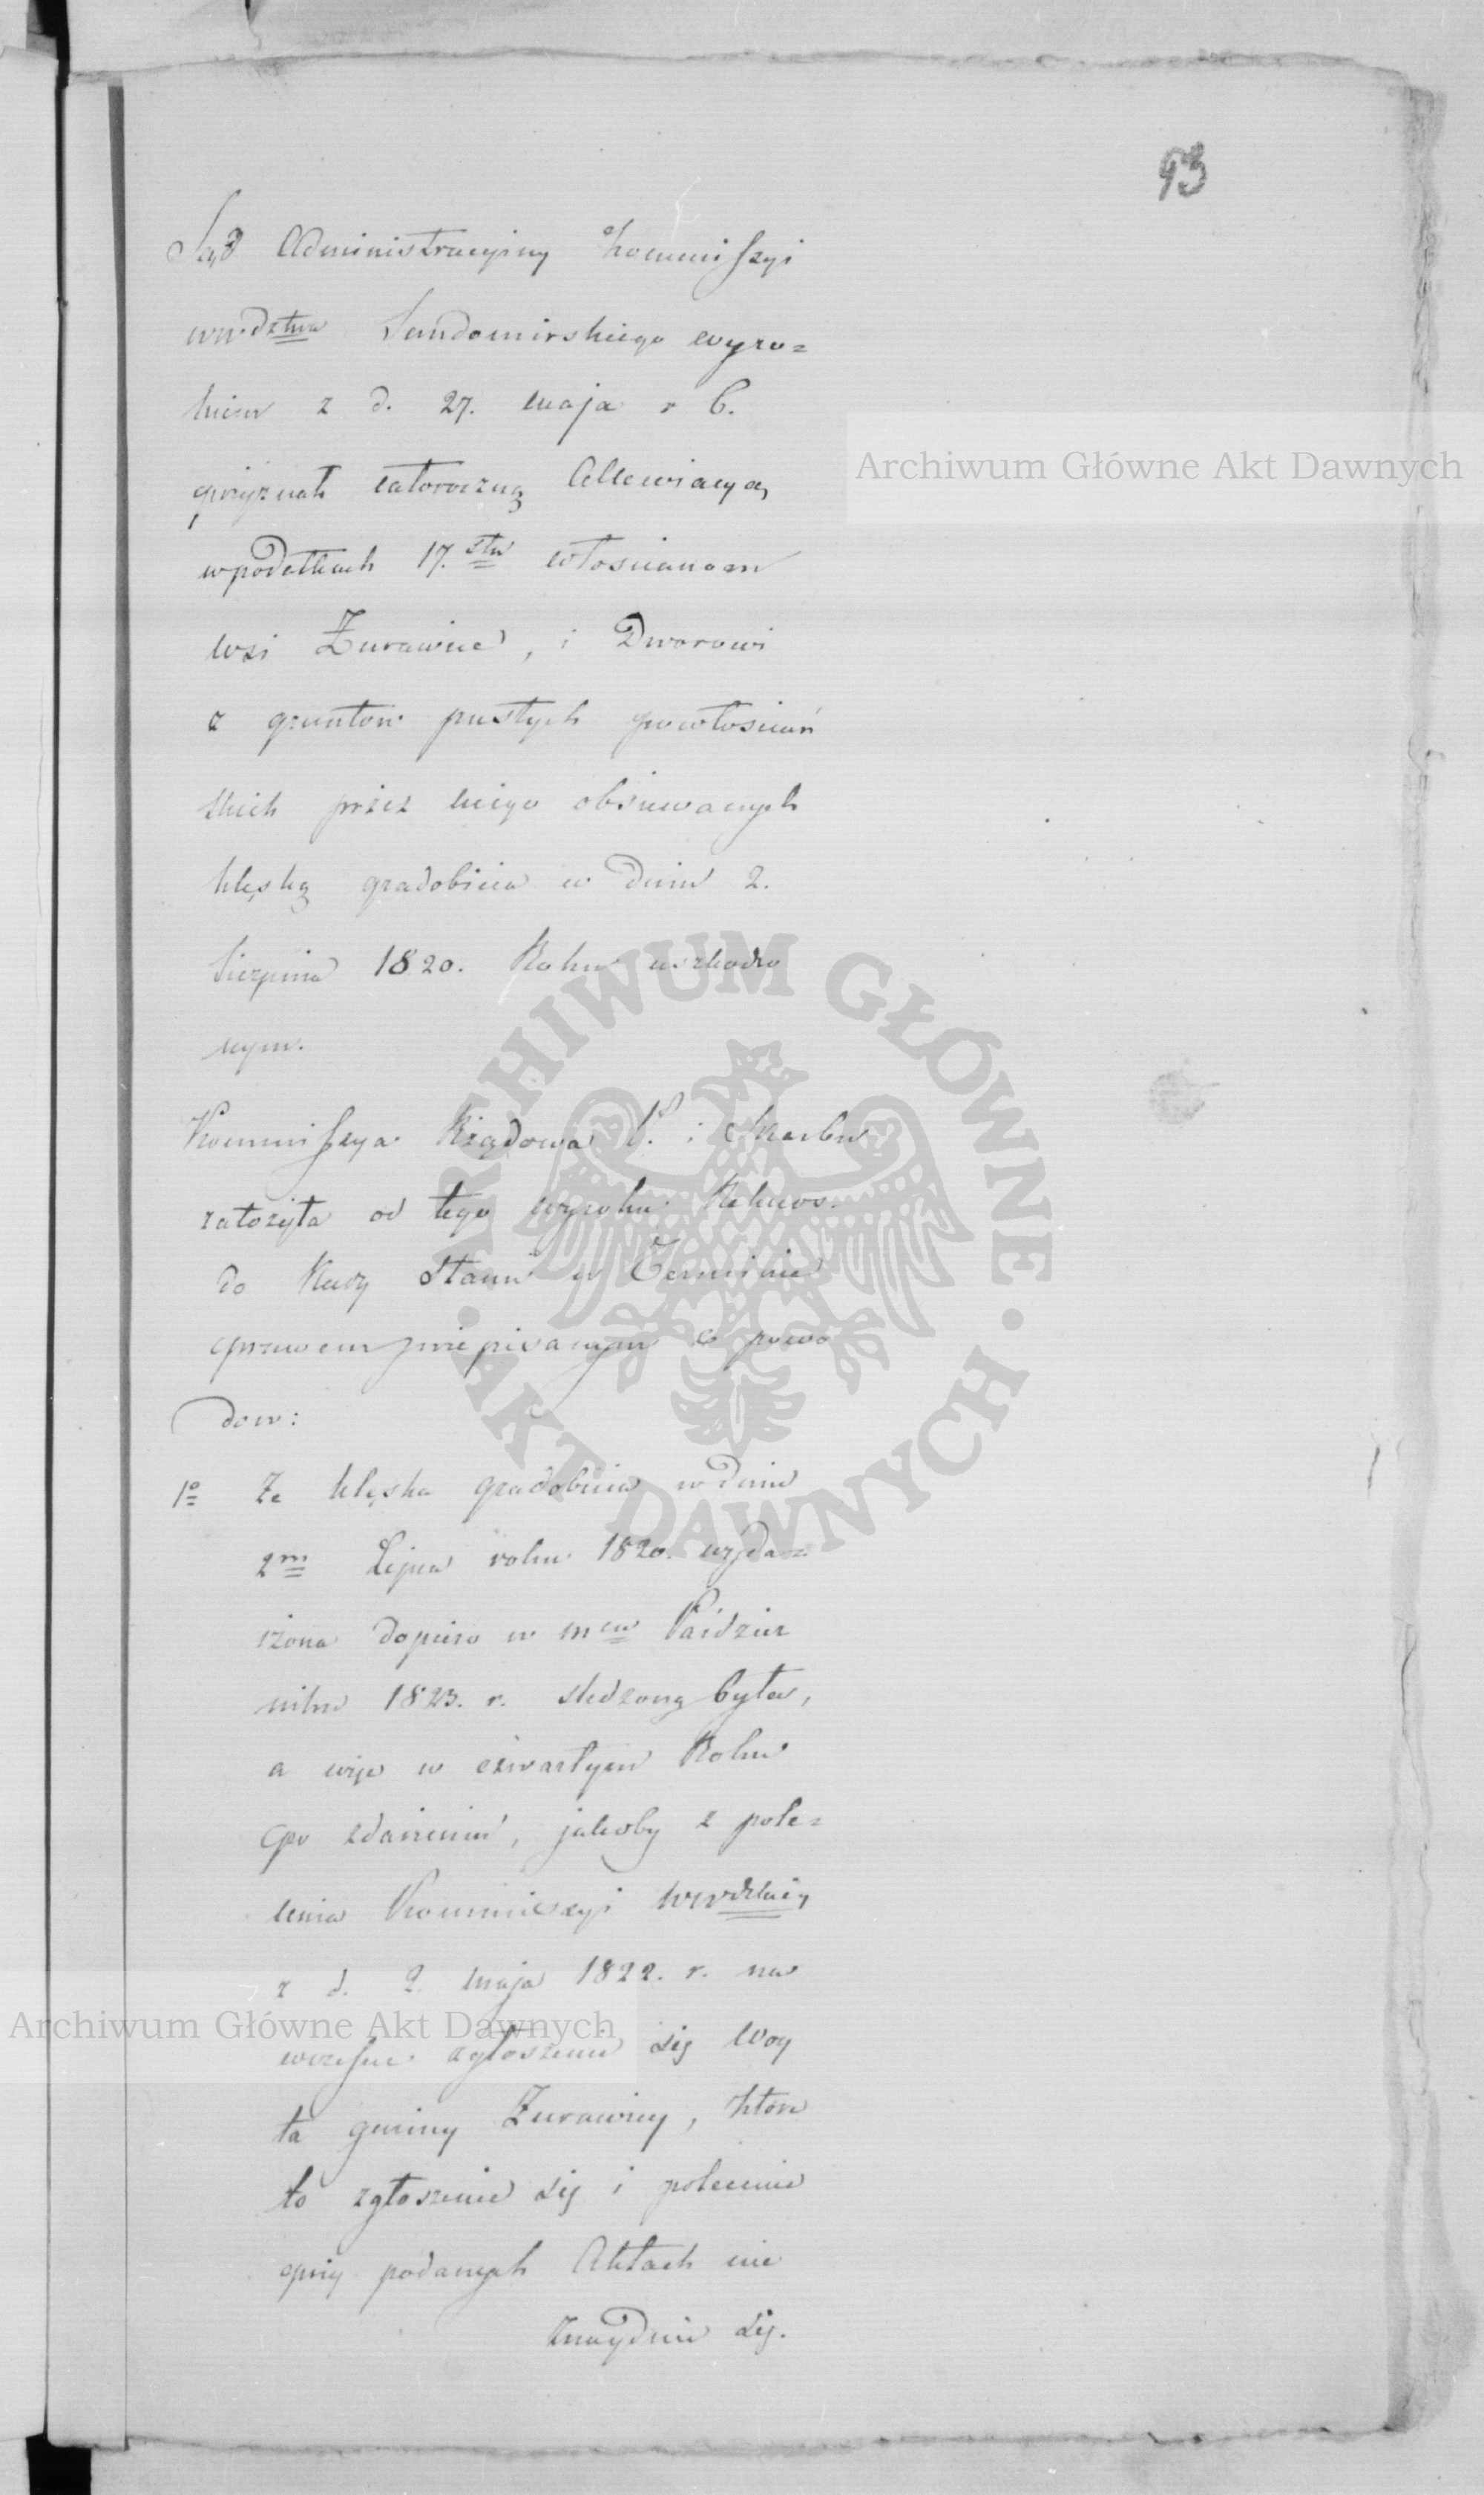 93
Sąd Administracyjny Kommissyi
wwdztwa Sandomirskiego wyro=
kiem z d. 27. maja r b.
przyznał całoroczną Allewiacyą
w podatkach 17.stu włościanom
wsi Żurawice, i Dworowi
z gruntów pustych powłościań
skich przez niego obsiewanych
klęską gradobicia w Dniu 2.
Sierpnia 1820. Roku uszkodzo
nym.
Kommissya Rządowa P. i Skarbu
założyła od tego wyroku Rekurs.
do Rady Stanu w Terminie
prawem przepisanym z powo
dów:
1º Że klęska gradobicia w dniu
2m Lipca roku 1820. wyda=
rzona dopiero w mcu Paździer
niku 1823. r. śledzoną była,
a więc w czwartym Roku
po zdarzeniu, jakoby z pole=
cenia Kommissyi wwdzkiey
z d. 2. maja 1822. r. na
wczesne zgłoszenie się Woy
ta gminy Żurawicy, które
to zgłoszenie się i polecenie
przy podanych Aktach nie
znayduie się.
Archiwum Główne Akt Dawnych
ARCHIWUM GŁÓWNE AKT DAWNYCH
Archiwum Główne Akt Dawnych